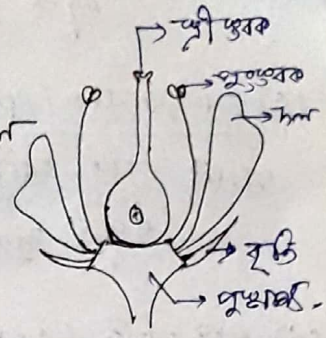 স্ত্রী স্তবক
পুংস্তবক
দল
বৃতি
পুষ্পাক্ষ